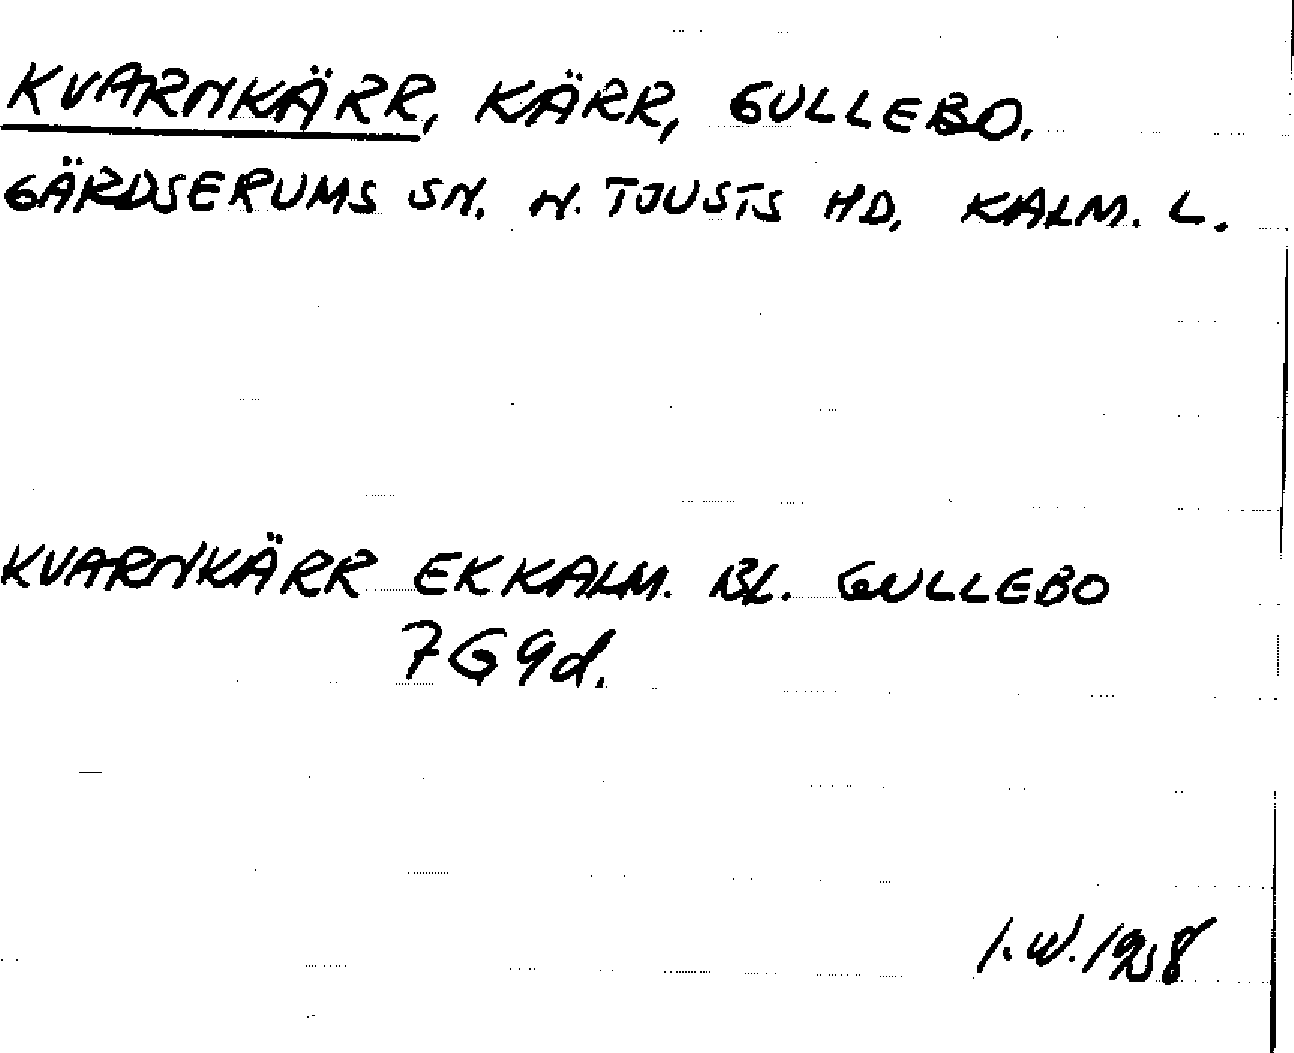 KVARNKÄRR, KÄRR, GULLEBO.
GÄRDSERUMS SN. N. TJUSTS HD, KALM. L.
KVARNKÄRR EKKALM. BL. GULLEBO
7G9d.
I.W. 1958